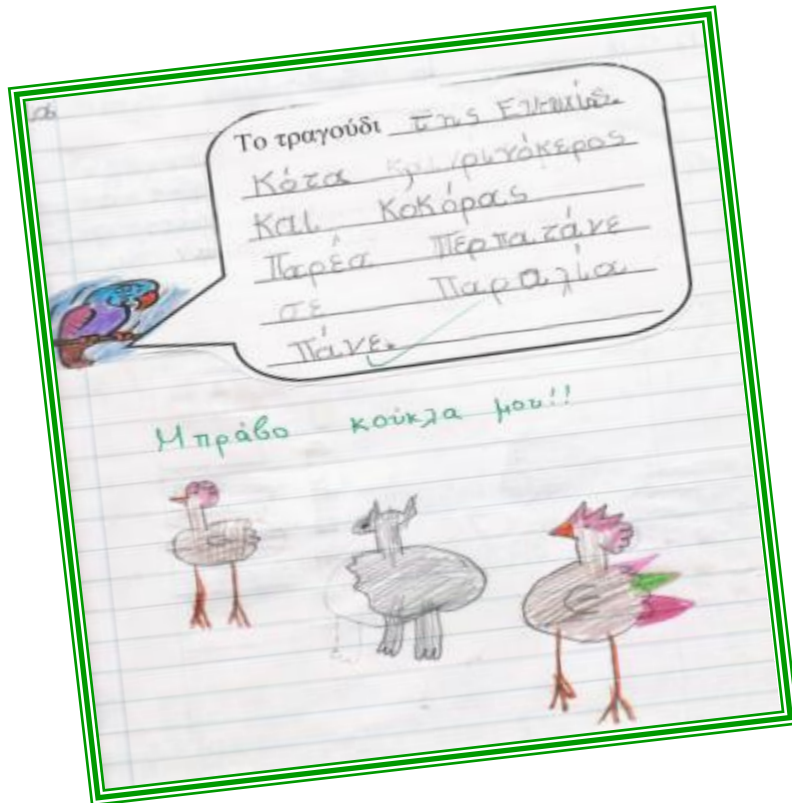 Το τραγούδι της
Κότα και ρινόκερος
και κοκόρας
Παρέα περπατάνε
σε παραλία
πάνε.
Μπράβο κούκλα μου!!